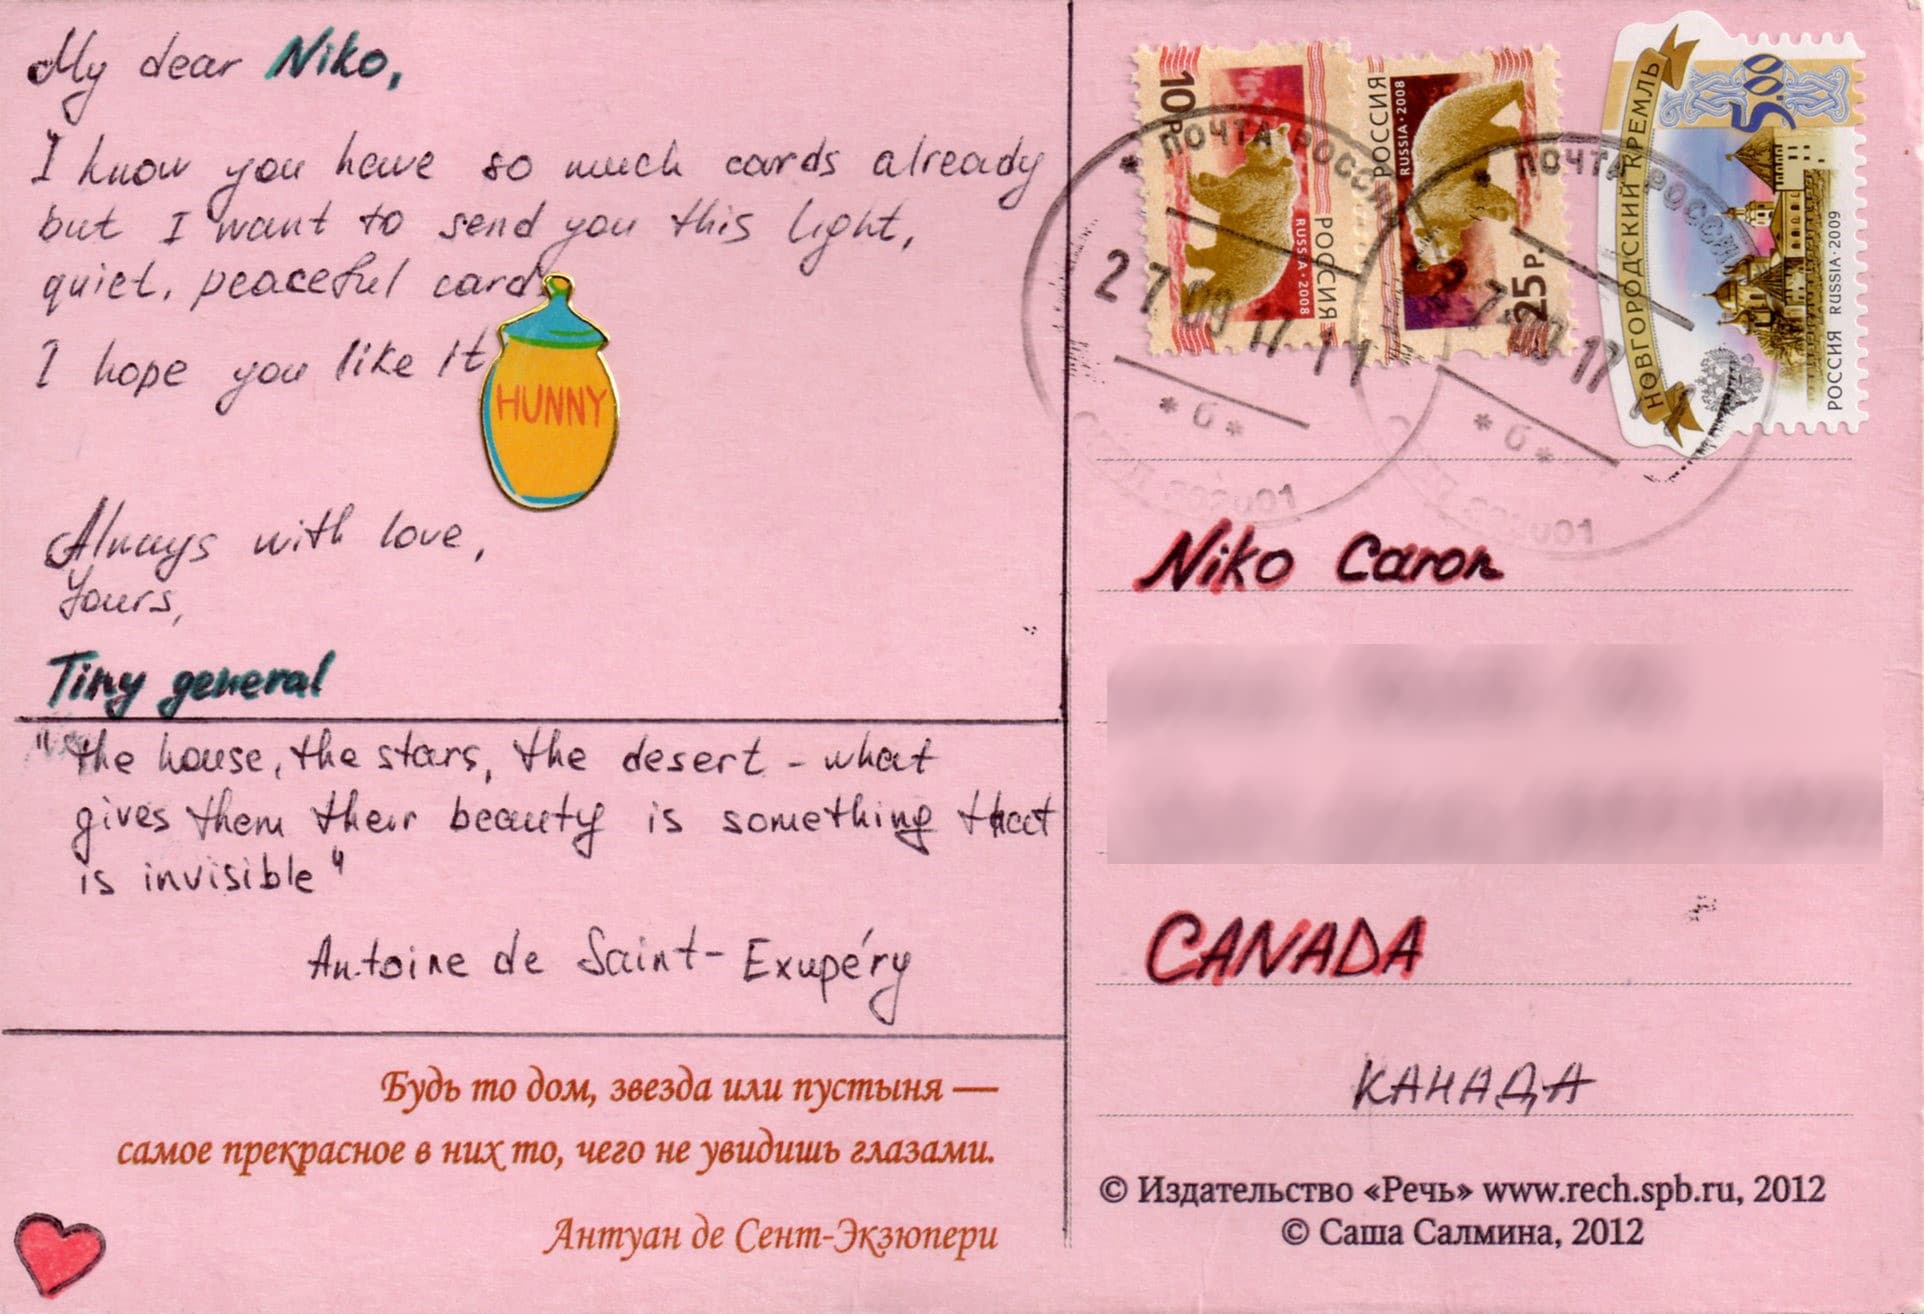 My dear Niko,
I know you have so much cards already
but I want to send you this light,
quiet, peaceful card
I hope you like it
HUNNY
Always with love,
Yours,
Tiny general
"the house, the stars, the desert - what
gives them their beauty is something that
is invisible"
Antoine de Saint-Exupéry
Будь то дом, звезда или пустыня —
самое прекрасное в них то, чего не увидишь глазами.
Антуан де Сент-Экзюпери
10Р
РОССИЯ
RUSSIA·2008
РОССИЯ
RUSSIA·2008
25Р
НОВГОРОДСКИЙ КРЕМЛЬ
5.00
РОССИЯ RUSSIA·2009
* ПОЧТА РОССИИ
27 09 17 11
* б *
* ПОЧТА РОССИИ
* б *
Niko Caron
CANADA
КАНАДА
© Издательство «Речь» www.rech.spb.ru, 2012
© Саша Салмина, 2012